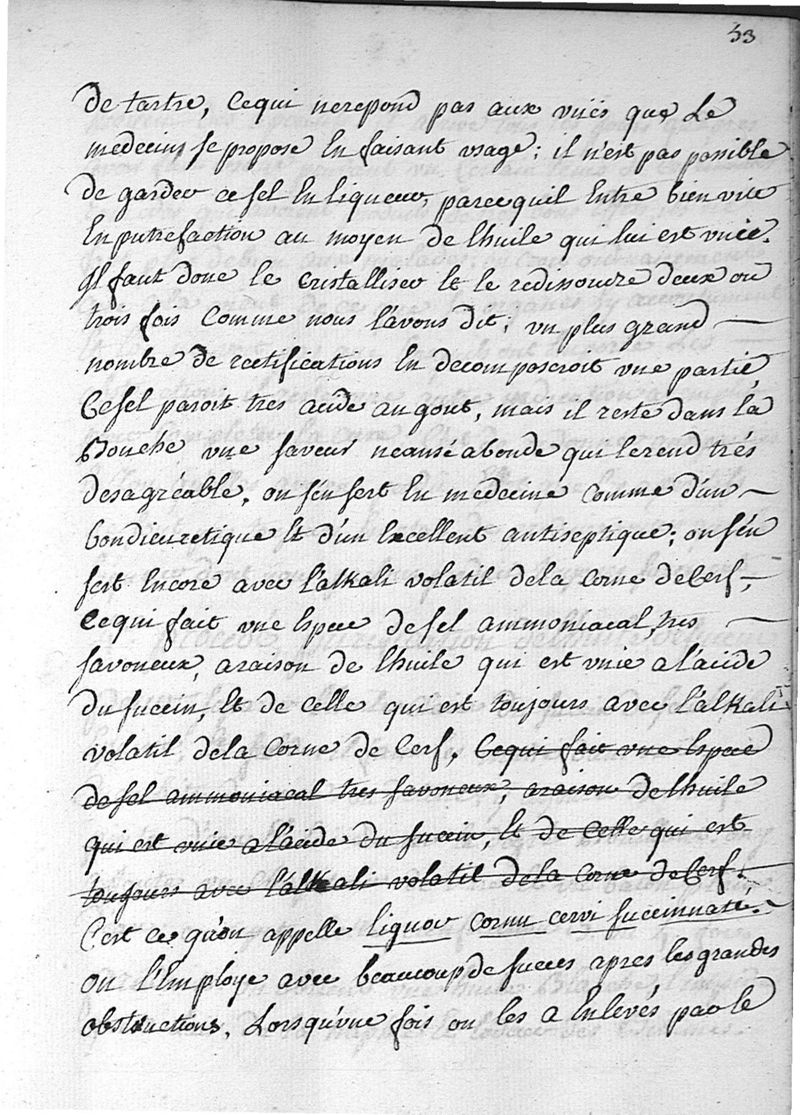 53
de tartre, cequi nerepond pas aux vuës que Le
medecins se propose En faisant usage; il n'est pas possible
de garder cesel En liqueur, parcequil Entre bien vite
En putrefaction au moyen de lhuile qui lui est vnie.
Il faut donc le cristalliser et le redissoudre deux ou
trois fois comme nous l'avons dit; vn plus grand —
nombre de rectifications En decomposeroit vne partie,
Cesel paroit tres acide au gout, mais il reste dans la
Bouche vne saveur neauséabonde qui lerend trés
desagréable, on s'en sert En medecine comme d'un —
bondieuretique Et d'un Excellent antiseptique; on s'én
sert Encore avec l'alkali volatil dela Corne de Cerf, —
Cequi fait vne Espece de sel ammoniacal, tres —
savoneux, araison de lhuile qui est vnie a l'acide
du succin, Et de celle qui est toujours avec l'alkali
volatil dela Corne de Cerf. Cequi fait vne Espece
de sel ammoniacal tres savoneux, araison de lhuile
qui est vnie a l'acide du succin, Et de Celle qui est
toujours avec l'alkali volatil de la Corne de Cerf.
C'est ce qu'on appelle liquor cornu cervi succinnate. —
On l'Employe avec beaucoup de succes apres les grandes
obstructions, Lorsqu'vne fois on les a Enlevés par le